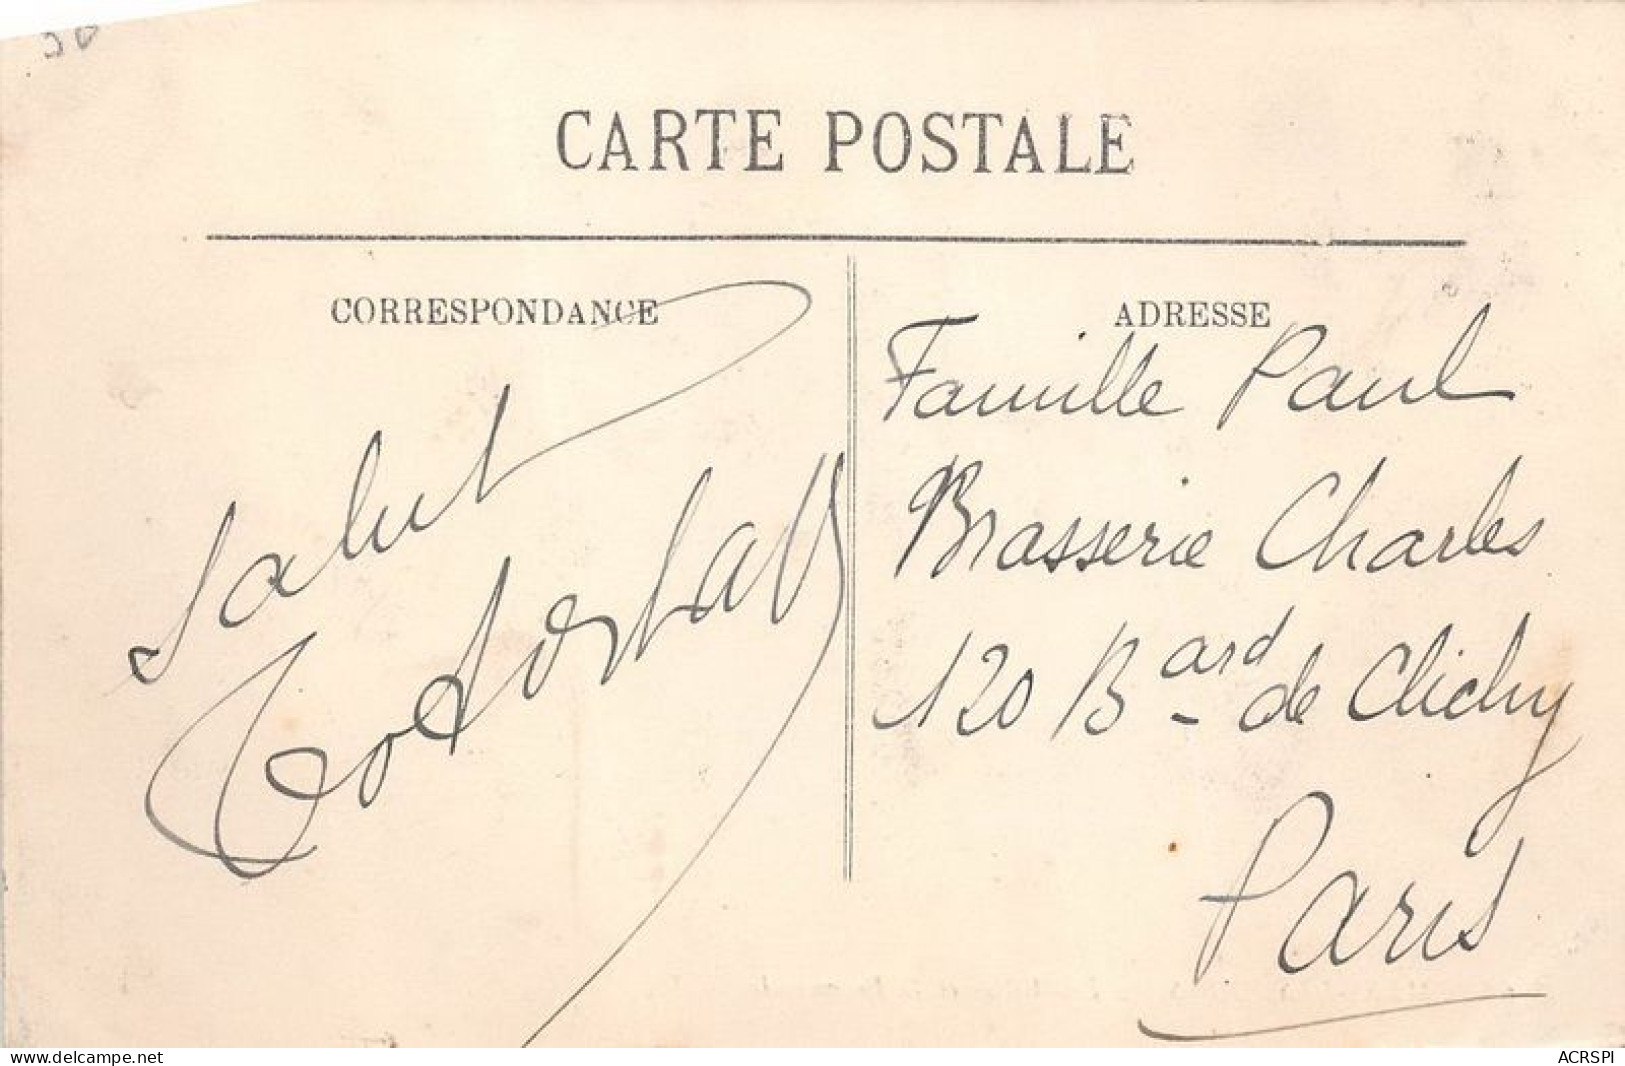 30
CARTE POSTALE
CORRESPONDANCE
Salut
ADRESSE
Famille Paul
Brasserie Charles
120 Bard de Clichy
Paris
www.delcampe.net
ACRSPI